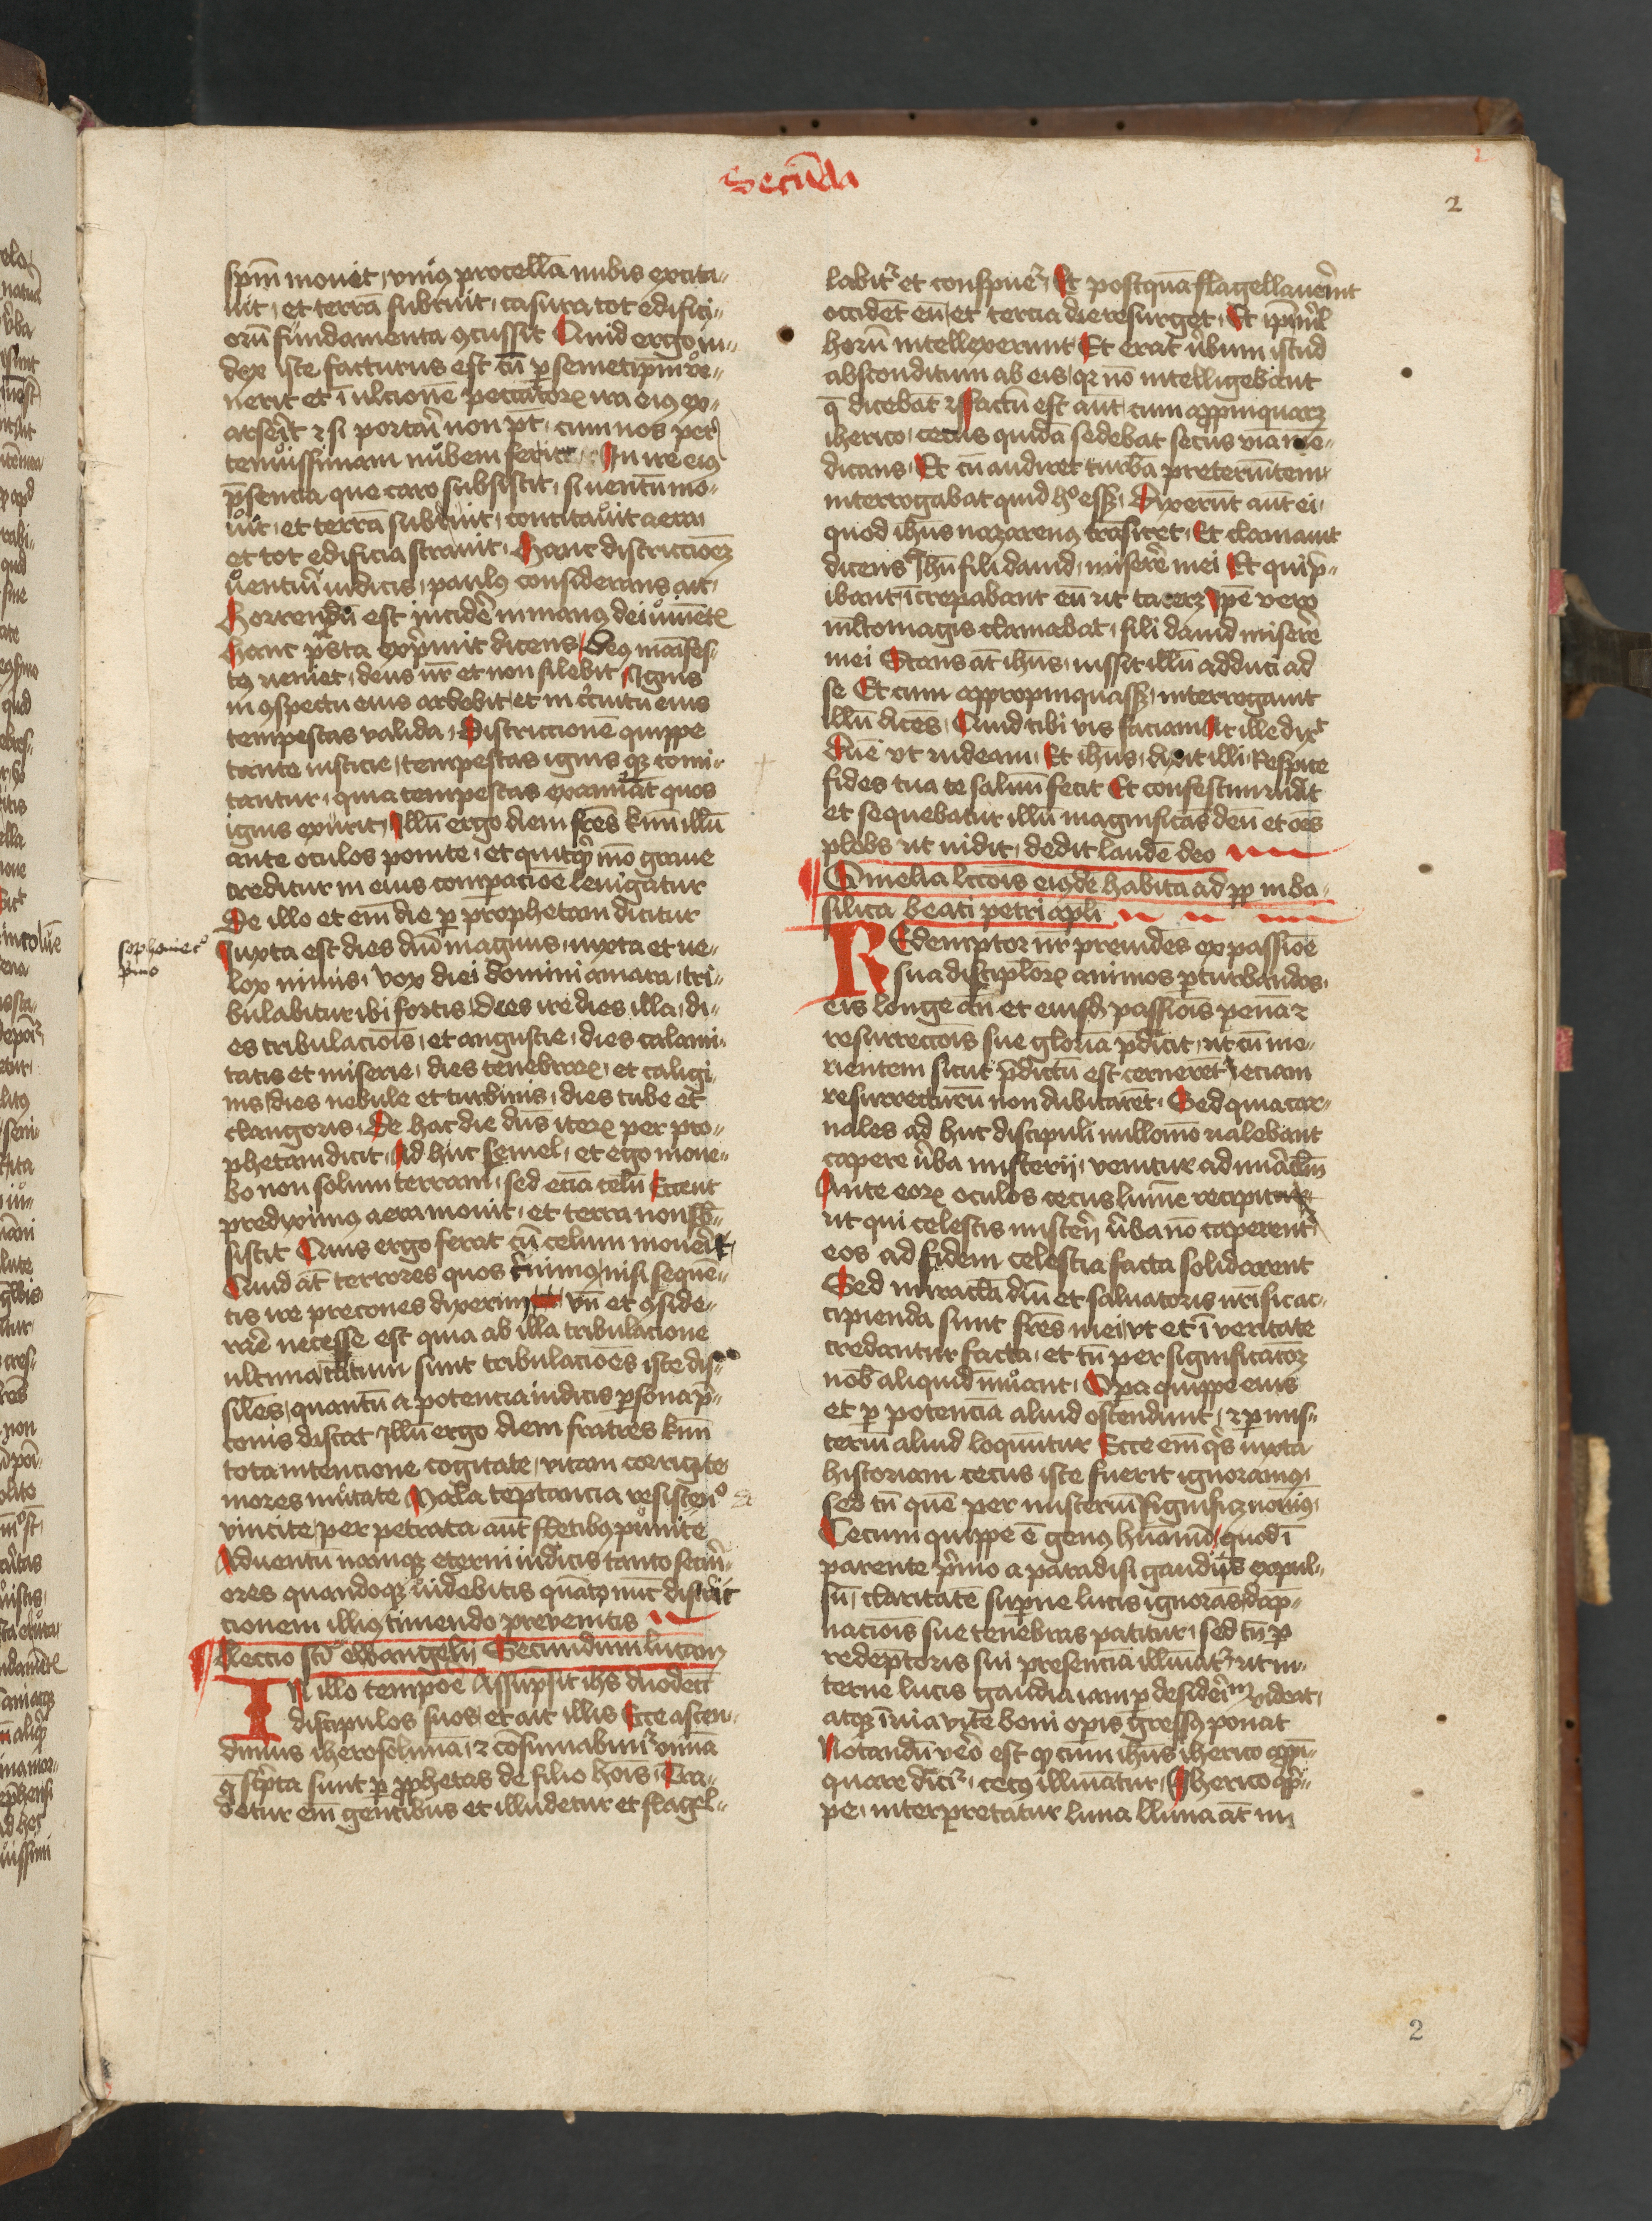 Secūda
2
spm̄ mouit, vniꝰ procellā nubis excita-
uit, et terrā subruit, casura tot edifici-
orū fundamenta ꝯcussit Quid ergo iu-
dex iste facturus est cū ꝑ semetipm̄ ve-
nerit et ī ulcionē peccatorꝝ ira eiꝰ ex-
arserit ⁊ si portari non pt̄, cum nos per
tenuissimam nubem ferit In ire eiꝰ
p̄sencia que caro subsistit, si uentū mo-
uit, et terrā subruit, concitauit aera
et tot edificia strauit, Hanc districcioēꝫ
uenturi iudicis, paulꝰ considerans ait,
Horrendū est incidē in manꝰ dei uiuētꝭ
Hanc psta exprimit dicens Deꝰ maifes-
tꝰ ueniet, deus nr̄ et non silebit Ignis
in ꝯspectu eius ardebit et in circuitu eius
tempestas valida, Districcionē quippe
tante iusticie, tempestas ignis qꝫ comi-
tantur, quia tempestas examīat quos
ignis exurit, Illū ergo diem frēs kmī illū
ante oculos ponite, et quitqͥd mō graue
creditur in eius comparacioē leuigatur
De illo et em̄ die ꝑ prophetam dicitur
Iuxta est dies dnī magnus, iuxta et ue-
lox nimis, vox diei domini amara, tri-
bulabitur ibi fortis, Dies ire dies illa, di-
es tribulaciōis, et angustie, dies calami-
tatis et miserie, dies tenebrarꝝ, et caligi-
nis, dies nebule et turbinis, dies tube et
clangoris, De hac die dn̄s iterꝝ per pro-
phetam dicit, Ad huc semel, et ego moue-
bo non solum terram, sed eciā celū Ecce ut
prediximꝰ aera mouit, et terra non sub-
sistit Quis ergo ferat cū celum mouerit
Quid āt terrores quos cernimꝰ, nisi sequē-
tis ire precones dixerim vn̄ et ꝯside-
rarē necesse est quia ab illa tribulacione
ultima tātum sunt tribulacioēs iste dis-
silēs, quantū a potencia iudicis ꝑsona p̄-
conis distat Illū ergo diem fratres kmī
tota intencione cogitate, vitam corrigite
mores mutate Mala teptancia resistendo
vincite, per petrata aūt fletibꝰ punite
Aduentū namqꝫ eterni iudicis tanto securi-
ores quandoqꝫ uidebitis quātꝫ nūc district
cionem illiꝰ timendo preuenitis
Leccio sci ewangelij Secundum lucam
IN illo tempoē Assumpsit ihs duodecī
discipulos suos, et ait illis Ecce ascen-
dimus iherosolimā, ⁊ cōsumabunt͛ omīa
q̄ scͥpta sunt ꝑ ꝓphetas de filio hoīs, Tra-
detur em̄ gentibus et illudetur et flagel-
sophonie c͛
primo
labit͛ et conspuet͛, Et postquā flagellauerint
occidēt eū, et tercia die resurget, Et ip̄i nichil
horū intellexerunt Et erat v̄bum istud
absconditum ab eis, qꝛ nō intelligebant
q̄ dicebāt͛ Factū est aūt, cum appropinquarꝫ
iherico, cecus quidā sedebat secus viā mē-
dicans, Et cū audiret turbā pretereūtem
interrogabat quid hͦ essꝫ, Dixerūt aūt ei,
quod ihūs nazarenꝰ trāsiret, Et clamauit
dicens Ihū fili dauid, miserē mei Et qui p̄-
ibant, īcrepabant eū ut tacerꝫ Ipē vero
mltomagis clamabat, fili dauid miserē
mei Stans āt ihūs, iussit illū adduci ad
se Et cum appropinquassꝫ, interrogauit
illū dicēs, Quid tibi vis faciam At ille dixͭ
Dn̄e vt uideam, Et ihūs, dixit illi, Respice
fides tua te saluū fecit Et confestim uidit
et sequebatur illū magnificās deū et oēs
plebs ut uidit, dedit laudē deo
Omelia lccōis eiꝰdē habita ad pp̄ in ba-
silica beati petri apli
REdemptor nr̄ preuidēs ex passiōe
sua discipulorꝝ animos ꝑturbandos,
eis longe an̄ et eiusdē passiōis penā ⁊
resurreccōis sue gloriā p̄dicit, ut cū mo-
rientem sicut p̄dictū est cerneret, eciam
resurrecturū non dubitarēt, Sed quia car-
nales ad huc discipuli nullomō ualebant
capere v̄ba misterij, venitur ad miraclm̄
Ante eorꝝ oculos cecus lumē recipit
ut qui celestis misterij v̄ba nō caperent
eos ad fidem celestia facta solidarent
Sed miracla dnī et saluatoris nr̄i sic ac-
cipienda sunt frēs mei, vt et ī veritate
credantur facta, et tn̄ per significacōꝫ
nob̄ aliquid innuant, Opa quippe eius
et ꝑ potenciā aliud ostendunt, ⁊ ꝑ mis-
teriū aliud loquūtur Ecce em̄ qͥs iuxta
historiam cecus iste fuerit ignoramꝰ,
sed tn̄ quē per misteriū significꝫ nouimꝰ,
Cecum quippe ē genꝰ hūanū, quod ī
parente pͥmo a paradisi gaudijs expul-
sū, claritatē superne lucis ignorās, dāp-
naciōis sue tenebras patitur, sed tn̄ ꝑ
redēptoris sui presenciā illūiat͛, ut in-
terne lucis gaudia iam ꝑ desideriū videat,
atqꝫ ī uia vite boni opis gressꝰ ponat
Notandū vero est qꝫ cum ihūs iherico appī-
quare dicit͛, cecꝰ illūinatur, Iherico qͥp-
pe, interpretatur luna, lluna āt in
2